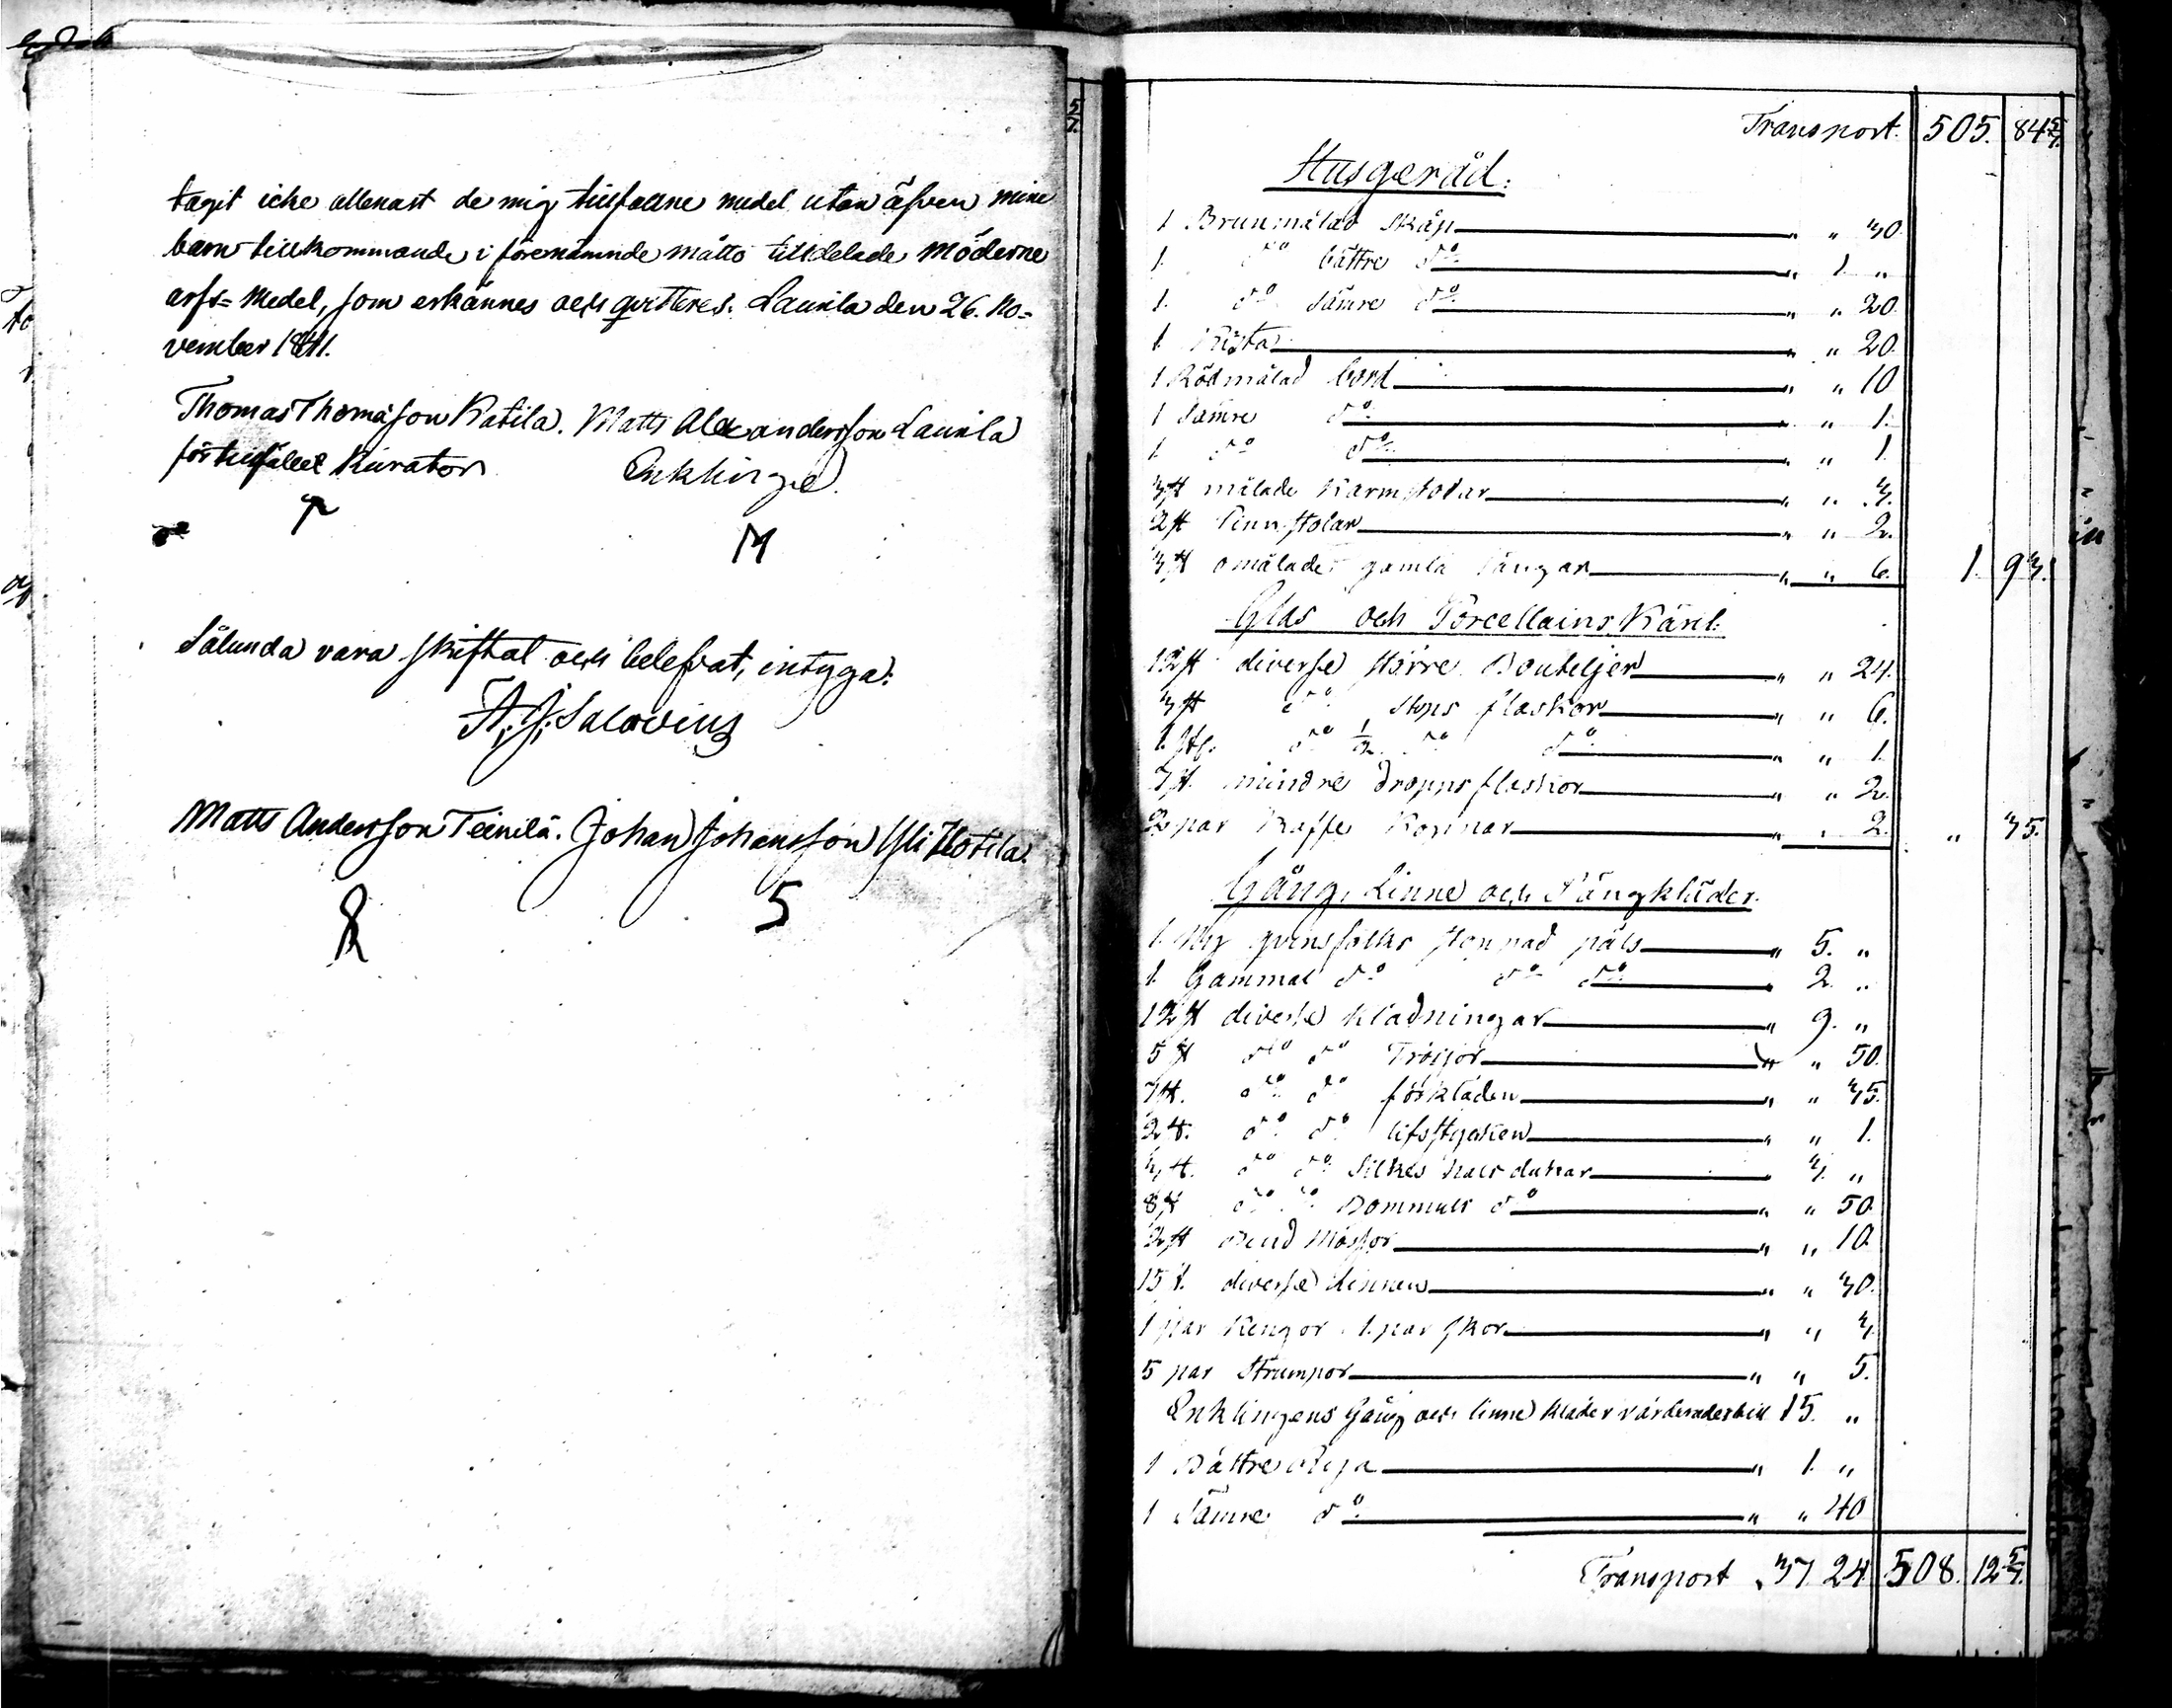 tagit icke allenast de mig tillfallne medel utan äfven mine
barn tillkommande i förenämnde måtto tilldelade Möderne
arfs= Medel, som erkännes och qvitteres. Laurila den 26. No=
vember 1841.
Thomas Thomasson Katila. Matts Alexandersson Laurila
för tillfället Kurator Enklinge
M
Sålunda vara skiftat och belefvat, intyga:
A. J. Salovius
Matts Andersson Teinilä. Johan Johansson Yli Hotila.
5
7.
Transport. 505. 84 5/7.
Husgeråd:
1 Brunmålad Skåp " " 30.
1. do bättre do " 1. "
1. do Sämre do " " 20.
1. Kista " " 20.
1 Rödmålad bord " " 10
1 Sämre do " " 1.
1. do do " " 1.
3 st målade Karmstolar " " 3.
2 st Pinnstolar " " 2.
3 st omålade gamla Sängar " " 6. 1. 93.
Glas och Porcellains Käril.
12 st diverse större Bouteljer " " 24.
3 st do Stops flaskor " " 6.
1. st. do 1/2 do do " " 1.
7 st. mindre Dropps flaskor " " 2.
2 par Kaffe Koppar " " 2. " 35.
Gång, Linne och Sängkläder.
1. Ny qvinsfolks stoppad päls " 5. "
1. Gammal do do do " 2. "
12 st diverse Klädningar " 9. "
5 st do do Tröijor " " 50.
7 st. do do förkläden " " 35.
2 st. do do lifstycken " " 1.
3 st. do do Silkes halsdukar " 3. "
8 st do do Bommuls do " " 50.
2 st Bind Mössor " " 10.
15 st. diverse Linnen " " 30.
1 par Kengor 1. par Skor " " 3.
5 par Strumpor " " 5.
Enklingens Gång och linne kläder värderades till 15. "
1 Bättre Ryja " 1. "
1 Sämre do " " 40
Transport 37. 24. 508. 12 5/7.